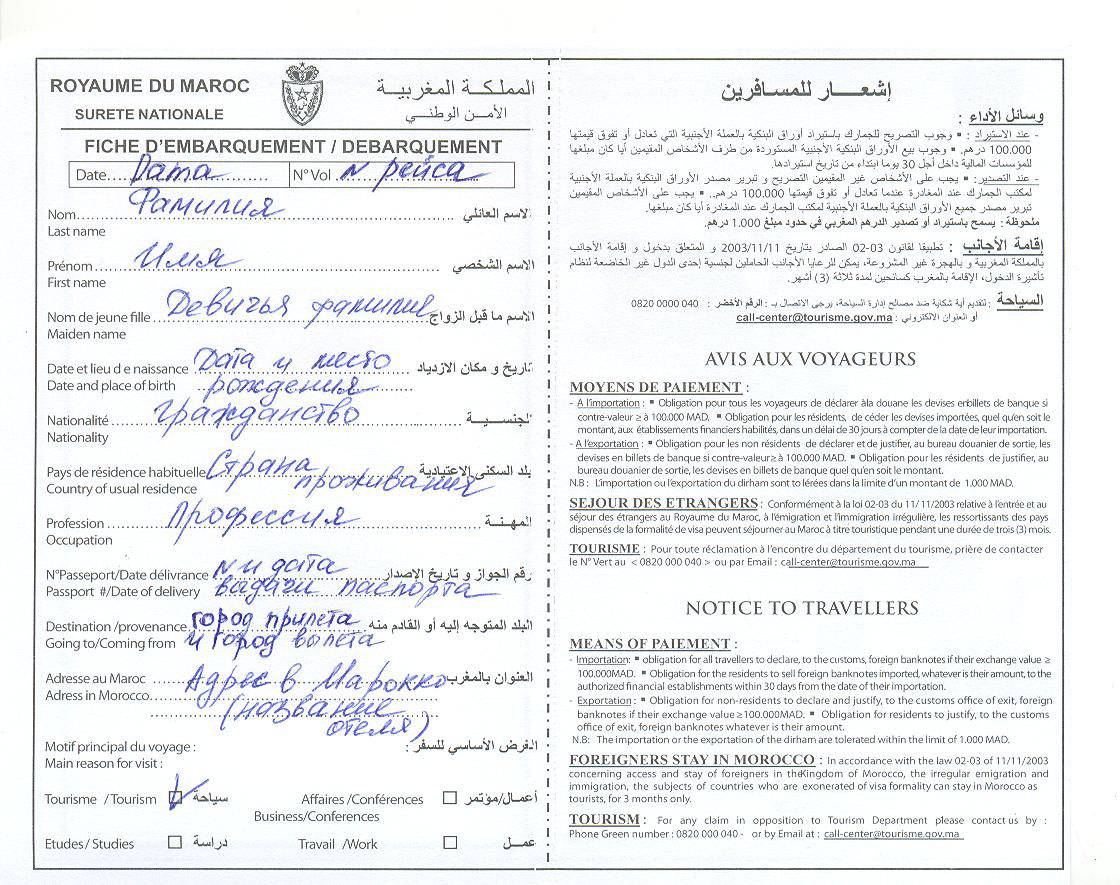 ROYAUME DU MAROC
المملكـة المغربيـة
SURETE NATIONALE
الأمـن الوطنـي
FICHE D'EMBARQUEMENT / DEBARQUEMENT
Date.... Дата ................ N° Vol N рейса
Nom Фамилия الاسم العائلي
Last name
Prénom Имя الاسم الشخصي
First name
Nom de jeune fille Девичья фамилия الاسم ما قبل الزواج
Maiden name
Date et lieu d e naissance Дата и место تاريخ و مكان الازدياد
Date and place of birth рождения
Nationalité Гражданство الجنسـيـــة
Nationality
Pays de résidence habituelle Страна بلد السكنى الإعتيادية
Country of usual residence проживания
Profession Профессия المهـنـة
Occupation
N°Passeport/Date délivrance N и дата رقم الجواز و تاريخ الإصدار
Passport #/Date of delivery выдачи паспорта
Destination /provenance город прилета البلد المتوجه إليه أو القادم منه
Going to/Coming from и город вылета
Adresse au Maroc Адрес в Марокко العنوان بالمغرب
Adress in Morocco (название
отеля)
Motif principal du voyage : الغرض الأساسي للسفر :
Main reason for visit :
Tourisme / Tourism سياحة Affaires /Conférences أعمال/مؤتمر
Business/Conferences
Etudes / Studies دراسة Travail /Work عمـــل
إشعـــار للمسـافـرين
وسائل الأداء :
- عند الاستيراد : ▪ وجوب التصريح للجمارك باستيراد أوراق البنكية بالعملة الأجنبية التي تعادل أو تفوق قيمتها
100.000 درهم. ▪ وجوب بيع الأوراق البنكية الأجنبية المستوردة من طرف الأشخاص المقيمين أيا كان مبلغها
للمؤسسات المالية داخل أجل 30 يوما ابتداء من تاريخ استيرادها.
- عند التصدير: ▪ يجب على الأشخاص غير المقيمين التصريح و تبرير مصدر الأوراق البنكية بالعملة الأجنبية
لمكتب الجمارك عند المغادرة عندما تعادل أو تفوق قيمتها 100.000 درهم. ▪ ويجب على الأشخاص المقيمين
تبرير مصدر جميع الأوراق البنكية بالعملة الأجنبية لمكتب الجمارك عند المغادرة أيا كان مبلغها.
ملحوظة : يسمح باستيراد أو تصدير الدرهم المغربي في حدود مبلغ 1.000 درهم.
إقامة الأجانب : تطبيقا لقانون 03-02 الصادر بتاريخ 2003/11/11 و المتعلق بدخول و إقامة الأجانب
بالمملكة المغربية و بالهجرة غير المشروعة، يمكن للرعايا الأجانب الحاملين لجنسية إحدى الدول غير الخاضعة لنظام
تأشيرة الدخول، الإقامة بالمغرب كسائحين لمدة ثلاثة (3) أشهر.
السياحة : لتقديم أية شكاية ضد مصالح إدارة السياحة، يرجى الاتصال بـ : الرقم الأخضر : 0820 0000 040
أو العنوان الالكتروني : call-center@tourisme.gov.ma
AVIS AUX VOYAGEURS
MOYENS DE PAIEMENT :
- A l'importation : ▪ Obligation pour tous les voyageurs de déclarer àla douane les devises enbillets de banque si
contre-valeur ≥ à 100.000 MAD. ▪ Obligation pour les résidents, de céder les devises importées, quel qu'en soit le
montant, aux établissements financiers habilités, dans un délai de 30 jours à compter de la date de leur importation.
- A l'exportation : ▪ Obligation pour les non résidents de déclarer et de justifier, au bureau douanier de sortie, les
devises en billets de banque si contre-valeur≥ à 100.000 MAD. ▪ Obligation pour les résidents de justifier, au
bureau douanier de sortie, les devises en billets de banque quel qu'en soit le montant.
N.B : L'importation ou l'exportation du dirham sont to lérées dans la limite d'un montant de 1.000 MAD.
SEJOUR DES ETRANGERS : Conformément à la loi 02-03 du 11/ 11/2003 relative à l'entrée et au
séjour des étrangers au Royaume du Maroc, à l'émigration et l'immigration irrégulière, les ressortissants des pays
dispensés de la formalité de visa peuvent séjourner au Maroc à titre touristique pendant une durée de trois (3) mois.
TOURISME : Pour toute réclamation à l'encontre du département du tourisme, prière de contacter
le N° Vert au < 0820 000 040 > ou par Email : call-center@tourisme.gov.ma
NOTICE TO TRAVELLERS
MEANS OF PAIEMENT :
- Importation: ▪ obligation for all travellers to declare, to the customs, foreign banknotes if their exchange value ≥
100.000MAD. ▪ Obligation for the residents to sell foreign banknotes imported, whatever is their amount, to the
authorized financial establishments within 30 days from the date of their importation.
- Exportation : ▪ Obligation for non-residents to declare and justify, to the customs office of exit, foreign
banknotes if their exchange value ≥100.000MAD. ▪ Obligation for residents to justify, to the customs
office of exit, foreign banknotes whatever is their amount.
N.B: The importation or the exportation of the dirham are tolerated within the limit of 1.000 MAD.
FOREIGNERS STAY IN MOROCCO : In accordance with the law 02-03 of 11/11/2003
concerning access and stay of foreigners in theKingdom of Morocco, the irregular emigration and
immigration, the subjects of countries who are exonerated of visa formality can stay in Morocco as
tourists, for 3 months only.
TOURISM : For any claim in opposition to Tourism Department please contact us by :
Phone Green number : 0820 000 040 - or by Email at : call-center@tourisme.gov.ma